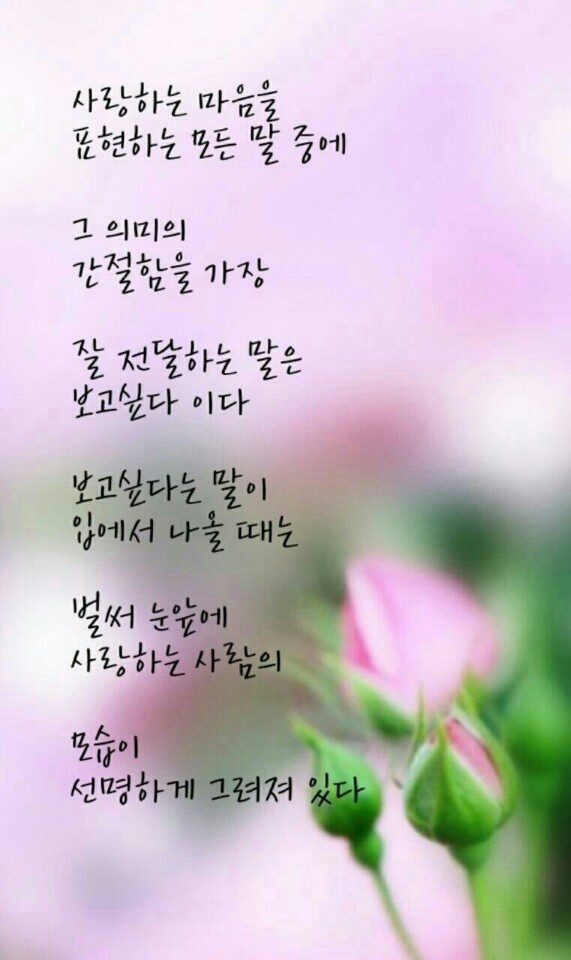 사랑하는 마음을
표현하는 모든 말 중에
그 의미의
간절함을 가장
잘 전달하는 말은
보고싶다 이다
보고싶다는 말이
입에서 나올 때는
벌써 눈앞에
사랑하는 사람의
모습이
선명하게 그려져 있다